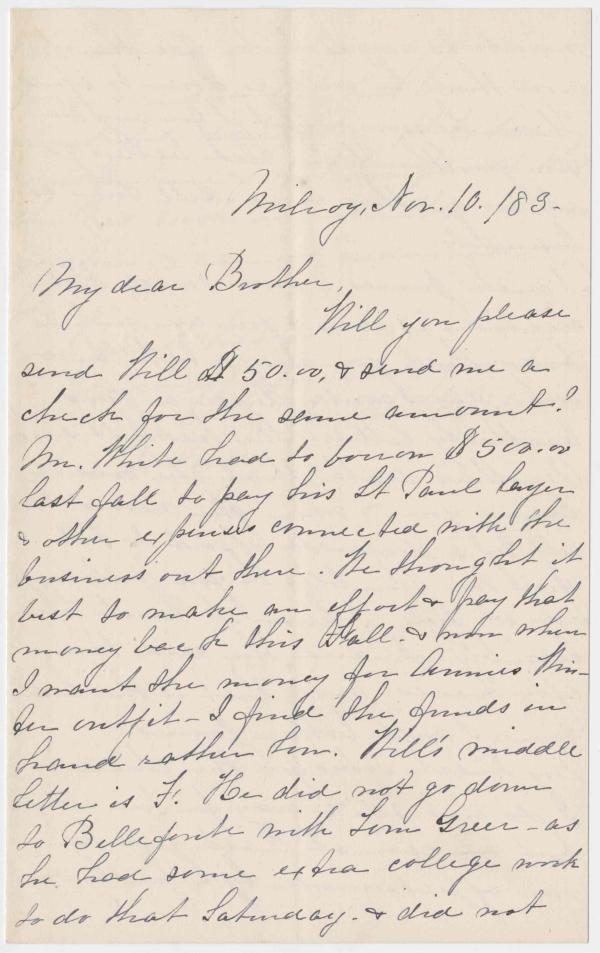 Milroy, Nov. 10. /83-
My dear Brother,
Will you please
send Will $50.00, & send me a
check for the same amount?
Mr. White had to borrow $500.00
last fall to pay his St Paul layer
& other expenses connected with the
business out there. We thought it
best to make an effort & pay that
money back this Fall. & now when
I want the money for Annies Win-
ter outfit - I find the funds in
hand rather low. Will's middle
letter is F. He did not go down
to Bellefonte with Tom Greer - as
he had some extra college work
to do that Saturday. & did not